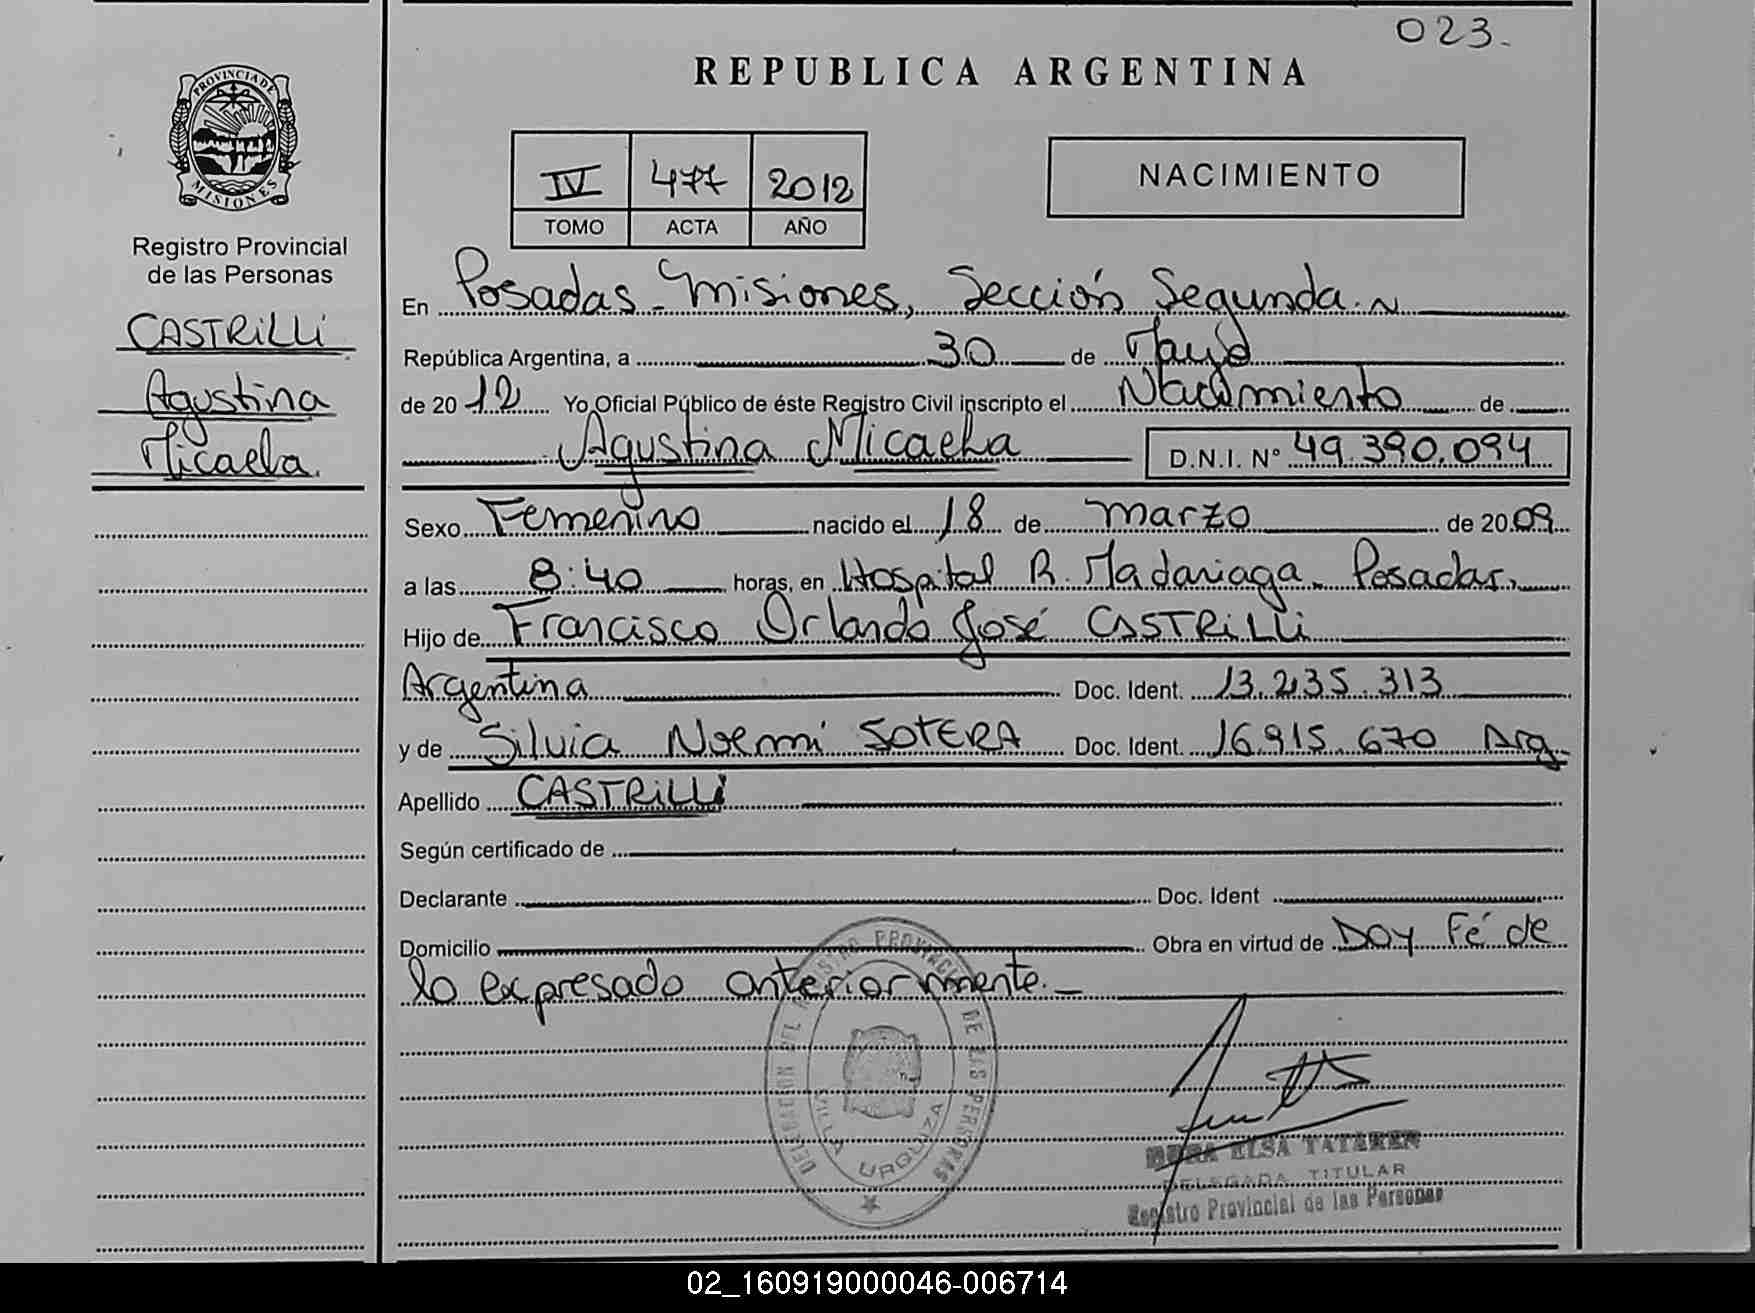 023.
REPUBLICA ARGENTINA
PROVINCIA DE
MISIONES
IV 477 2012
TOMO ACTA AÑO
NACIMIENTO
Registro Provincial
de las Personas
CASTRiLLi
Agustina
Micaela.
En Posadas - Misiones, Sección Segunda.
República Argentina, a 30 de Mayo
de 20 12 Yo Oficial Público de éste Registro Civil inscripto el Nacimiento de
Agustina Micaela D.N.I. N° 49.390.094
Sexo Femenino nacido el 18 de marzo de 20 09
a las 8:40 horas, en Hospital R. Madariaga. Posadas.
Hijo de Francisco Orlando José CASTRiLLi
Argentina Doc. Ident. 13.235.313
y de Silvia Noemí SOTERA Doc. Ident. 16.915.670 Arg.
Apellido CASTRiLLi
Según certificado de
Declarante Doc. Ident
Domicilio Obra en virtud de Doy Fé de
lo expresado anteriormente.-
DELEGACION DEL REGISTRO PROVINCIAL DE LAS PERSONAS
VILLA URQUIZA
ELSA
DELEGADA TITULAR
Registro Provincial de las Personas
02_160919000046-006714